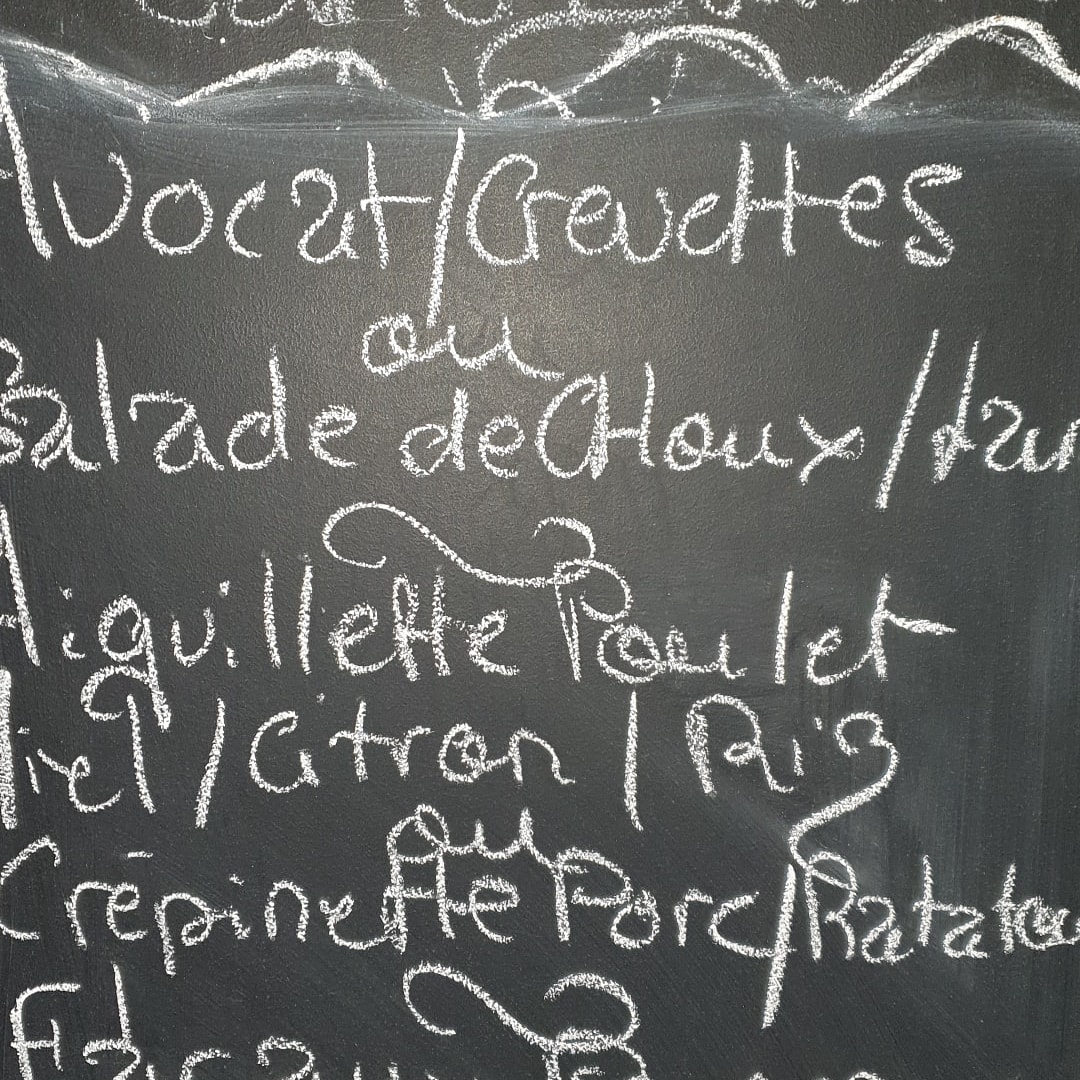 Avocat/Crevettes
ou
Salade de CHoux/
Aiguillette Poulet
Miel/Citron/Riz
ou
Crépinette Porc/